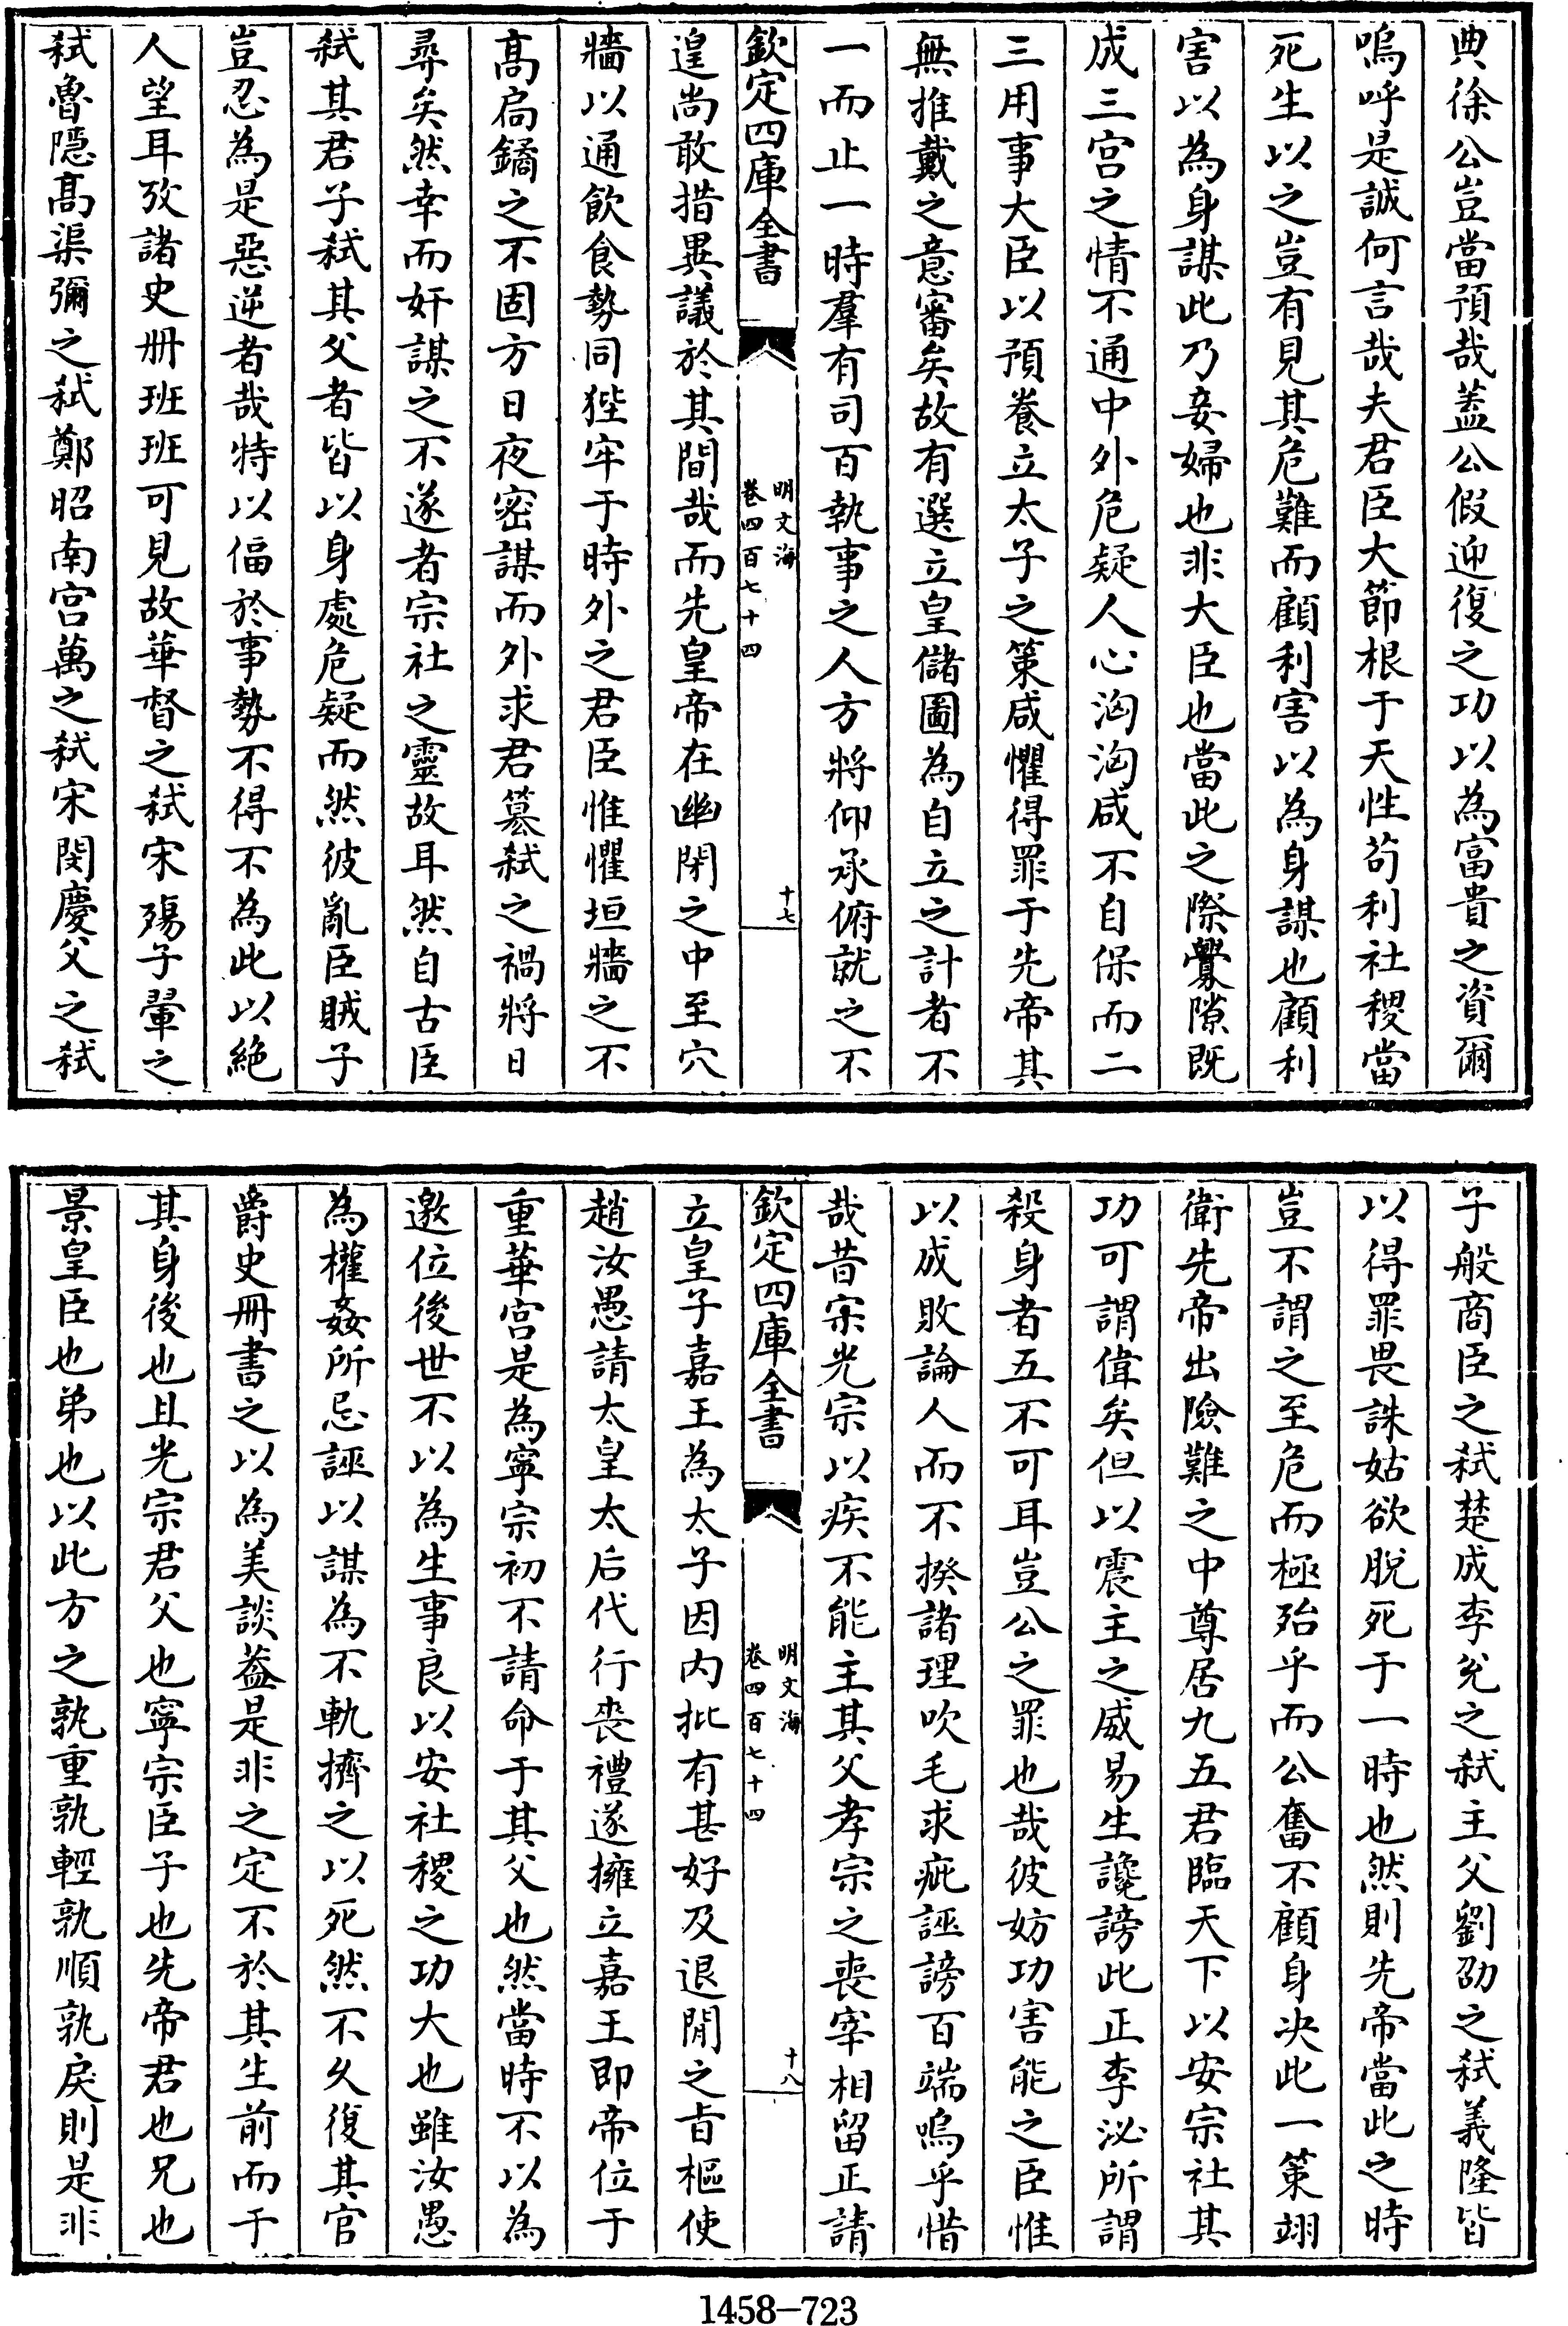 典徐公豈當預哉葢公假迎復之功以為富貴之資爾
嗚呼是誠何言哉夫君臣大節根于天性茍利社稷當
死生以之豈有見其危難而顧利害以為身謀也顧利
害以為身謀此乃妾婦也非大臣也當此之際釁隙既
成三宫之情不通中外危疑人心洶洶咸不自保而二
三用事大臣以預養立太子之策咸懼得罪于先帝其
無推戴之意審矣故有選立皇儲圖為自立之計者不
一而止一時羣有司百執事之人方將仰承俯就之不
欽定四庫全書
明文海
卷四百七十四
十七
遑尚敢措異議於其間哉而先皇帝在幽閉之中至穴
牆以通飲食勢同狴牢于時外之君臣惟懼垣牆之不
髙扃鐍之不固方日夜密謀而外求君簒弑之禍將日
尋矣然幸而奸謀之不遂者宗社之靈故耳然自古臣
弑其君子弑其父者皆以身處危疑而然彼亂臣賊子
豈忍為是惡逆者哉特以偪於事勢不得不為此以絶
人望耳攷諸史册班班可見故華督之弑宋殤子翬之
弑魯隱髙渠彌之弑鄭昭南宫萬之弑宋閔慶父之弑
子般商臣之弑楚成李兊之弑主父劉劭之弑義隆皆
以得罪畏誅姑欲脱死于一時也然則先帝當此之時
豈不謂之至危而極殆乎而公奮不顧身决此一策翊
衛先帝出險難之中尊居九五君臨天下以安宗社其
功可謂偉矣但以震主之威易生讒謗此正李泌所謂
殺身者五不可耳豈公之罪也哉彼妨功害能之臣惟
以成敗論人而不揆諸理吹毛求疵誣謗百端嗚乎惜
哉昔宋光宗以疾不能主其父孝宗之喪宰相留正請
欽定四庫全書
明文海
卷四百七十四
十八
立皇子嘉王為太子因内批有甚好及退閒之㫖樞使
趙汝愚請太皇太后代行喪禮遂擁立嘉王即帝位于
重華宫是為寧宗初不請命于其父也然當時不以為
邀位後世不以為生事良以安社稷之功大也雖汝愚
為權姦所忌誣以謀為不軌擠之以死然不乆復其官
爵史册書之以為美談葢是非之定不於其生前而于
其身後也且光宗君父也寧宗臣子也先帝君也兄也
景皇臣也弟也以此方之孰重孰輕孰順孰戾則是非
1458-723